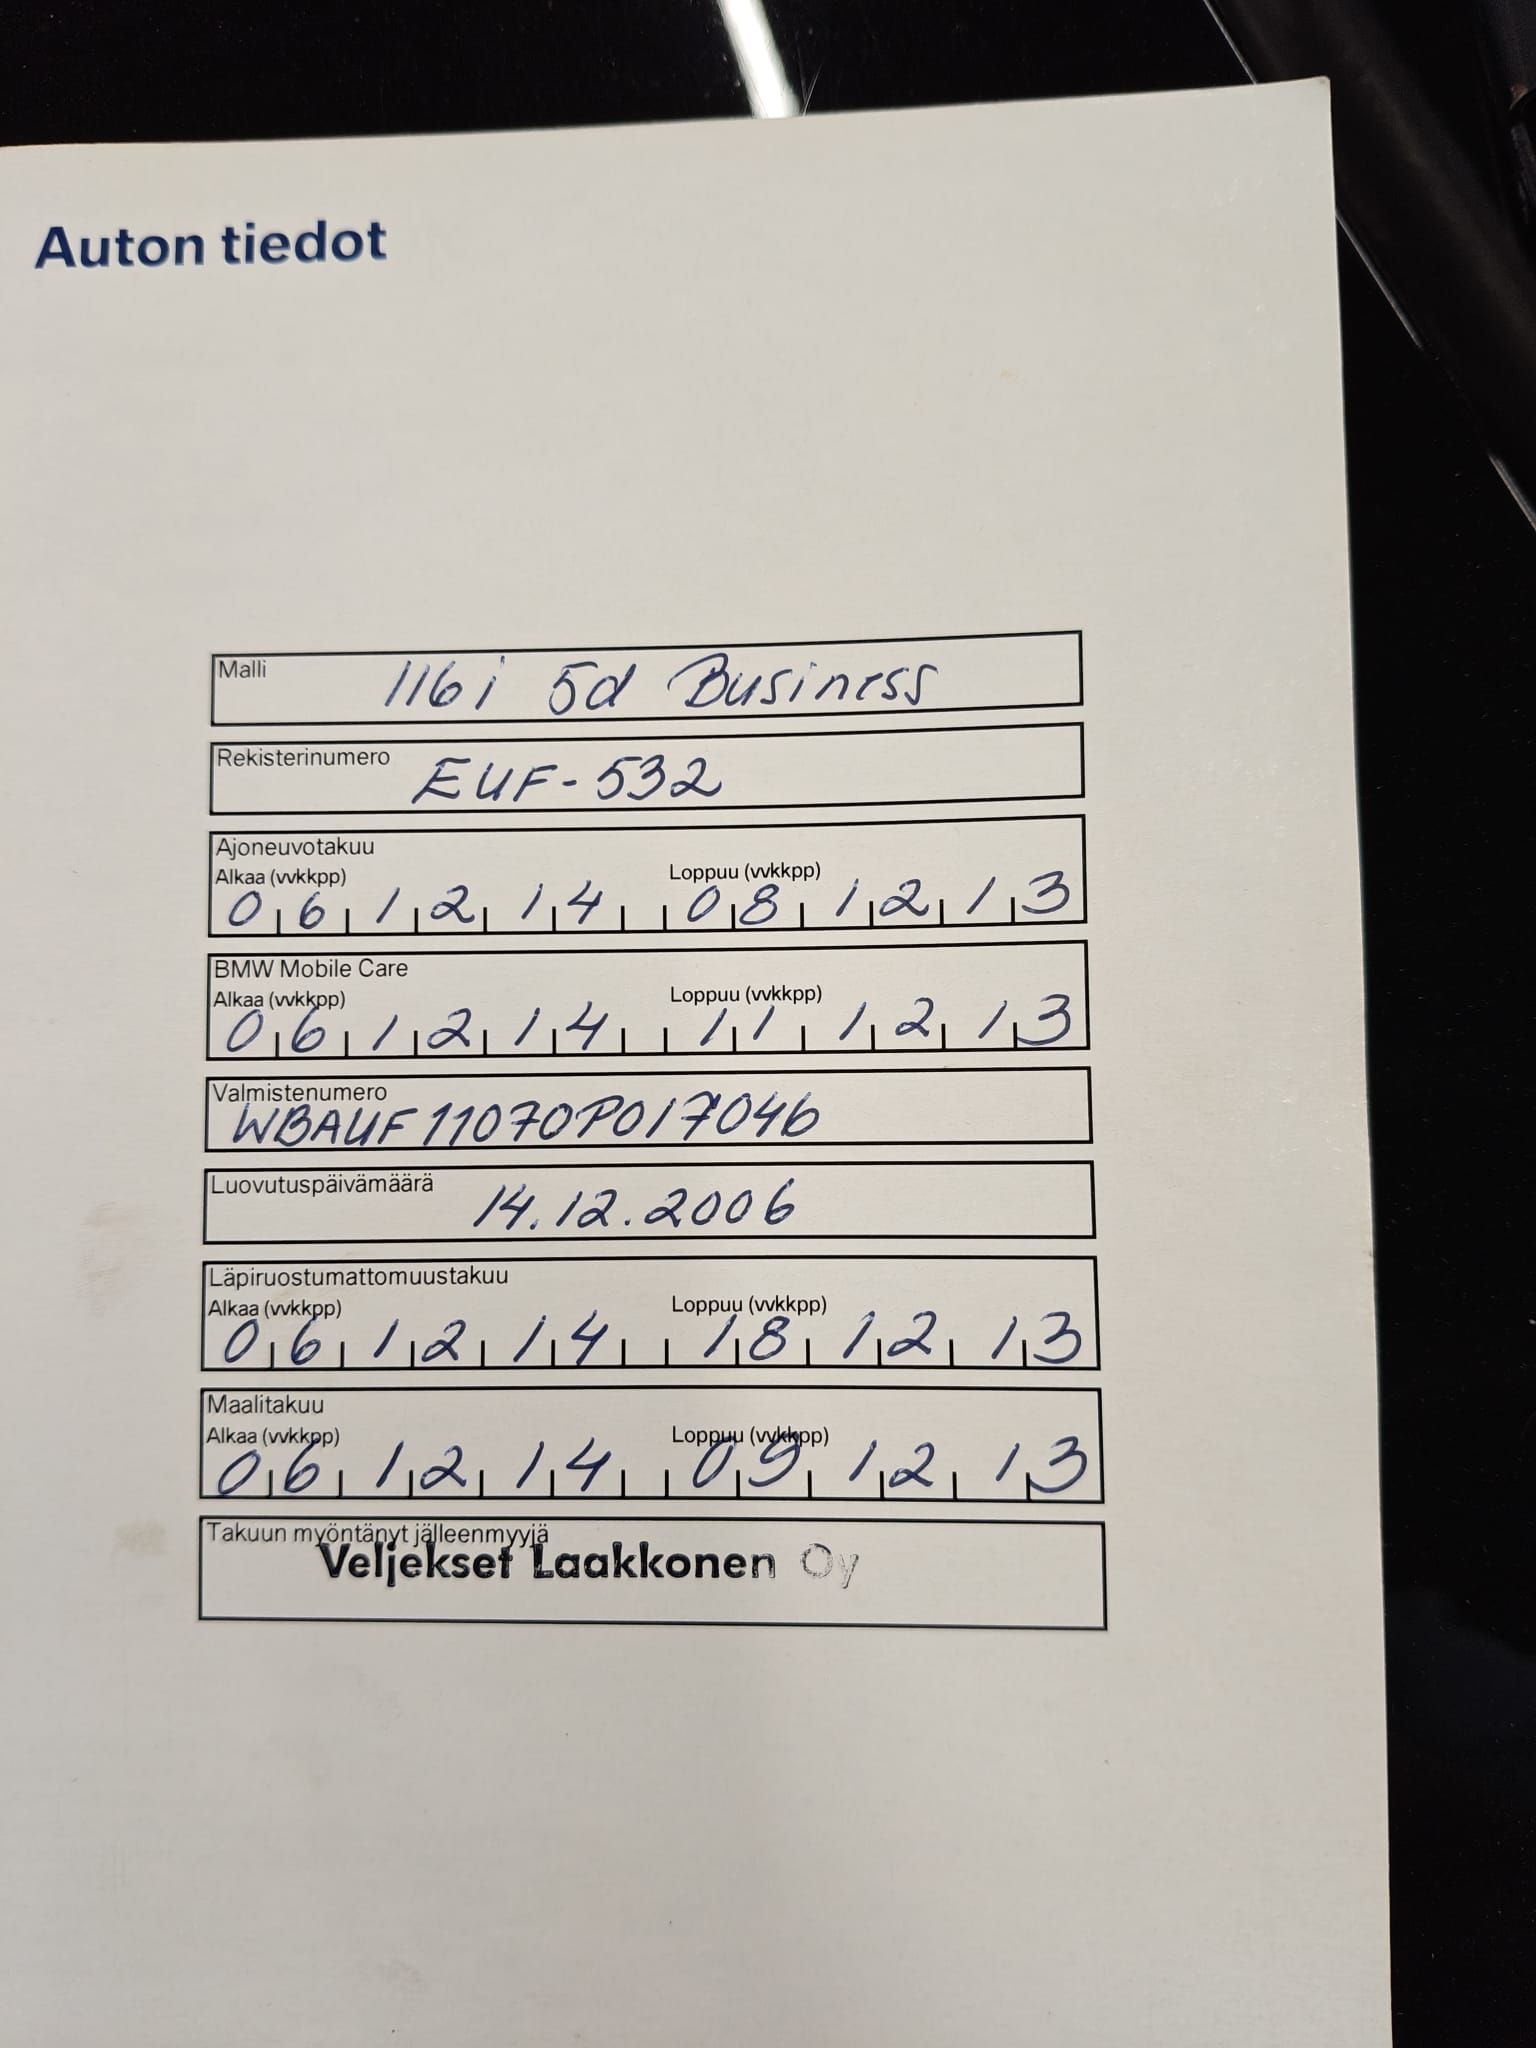 Auton tiedot
Malli 116i 5d Business
Rekisterinumero EUF-532
Ajoneuvotakuu
Alkaa (vvkkpp) Loppuu (vvkkpp)
0 6 1 2 1 4 0 8 1 2 1 3
BMW Mobile Care
Alkaa (vvkkpp) Loppuu (vvkkpp)
0 6 1 2 1 4 1 1 1 2 1 3
Valmistenumero
WBAUF11070P017046
Luovutuspäivämäärä 14.12.2006
Läpiruostumattomuustakuu
Alkaa (vvkkpp) Loppuu (vvkkpp)
0 6 1 2 1 4 1 8 1 2 1 3
Maalitakuu
Alkaa (vvkkpp) Loppuu (vvkkpp)
0 6 1 2 1 4 0 9 1 2 1 3
Takuun myöntänyt jälleenmyyjä
Veljekset Laakkonen Oy